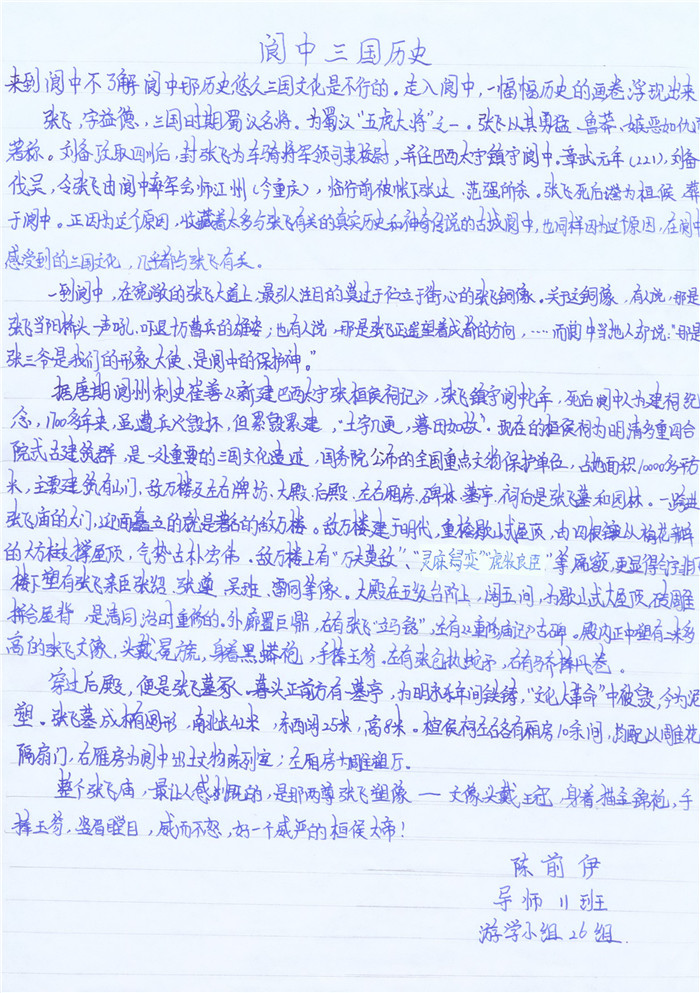 阆中三国历史
来到阆中不了解阆中那历史悠久三国文化是不行的。走入阆中,一幅幅历史的画卷浮现出来
张飞,字益德,三国时期蜀汉名将。为蜀汉“五虎大将”之一。张飞以其勇猛、鲁莽、嫉恶如仇而
著称。刘备攻取四川后,封张飞为车骑将军领司隶校尉,并任巴西太守镇守阆中。章武元年(221),刘备
伐吴,令张飞由阆中率军会师江州(今重庆),临行前被帐下张达、范强所杀。张飞死后谥为桓侯,葬
于阆中。正因为这个原因,收藏着太多与张飞有关的真实历史和神奇传说的古城阆中,也同样因为这个原因,在阆中
感受到的三国文化,几乎都与张飞有关。
一到阆中,在宽敞的张飞大道上,最引人注目的莫过于伫立于街心的张飞铜像。关于这铜像,有人说,那是
张飞当阳桥头一声吼,吓退十万曹兵的雄姿;也有人说,那是张飞正遥望着成都的方向,……而阆中当地人却说:“那是
张三爷是我们的形象大使、是阆中的保护神。”
据唐期阆州刺史崔善《新建巴西太守张桓侯祠记》,张飞镇守阆七年,死后阆中人为建祠纪
念,1700多年来,虽遭兵火毁坏,但累毁累建,“土宇几更,暮田如故”。现在的桓侯祠为明清多重四合
院式古建筑群,是一处重要的三国文化遗迹,国务院公布的全国重点文物保护单位,占地面积10000多平方
米,主要建筑有山门、敌万楼及左右牌坊、大殿、后殿、左右厢房、碑林、墓亭,祠后是张飞墓和园林。一跨进
张飞庙的大门,迎面矗立的就是著名的敌万楼。敌万楼建于明代,重檐歇山式屋顶,由四根镶以梅花瓣
的大方柱支撑屋顶,气势古朴宏伟。敌万楼上有“万夫莫敌”、“灵庥舄奕”“虎臣良牧”等匾额,更显得气宇非凡
楼下塑有张飞亲臣张绍、张遵、吴班、雷同等像。大殿在五级台阶上,阔五间,为歇山式大屋顶,砖雕
拼合屋脊,是清同治时重修的。外廊置巨鼎,右有张飞“立马铭”,左有《重修庙记》古碑。殿内正中塑有二米多
高的张飞文像,头戴冕旒,身着黑蟒袍,手捧玉笏。左有张苞执蛇矛,右有马齐捧兵卷。
穿过后殿,便是张飞墓冢。暮头正前方有一墓亭,为明永年间铁铸,“文化大革命”中被毁,今为泥
塑。张飞墓成椭圆形,南北长42米,东西阔25米,高8米。桓侯祠左右各有厢房10余间,均配以雕花
隔扇门,右雁房为阆中出土文物陈列室;左厢房为雕塑厅。
整个张飞庙,最让人感慨的,是那两尊张飞塑像——文像头戴王冠,身着描金锦袍,手
捧玉笏,竖眉瞪目,威而不怒,好一个威严的桓侯大帝!
陈前伊
导师11班
游学小组26组.